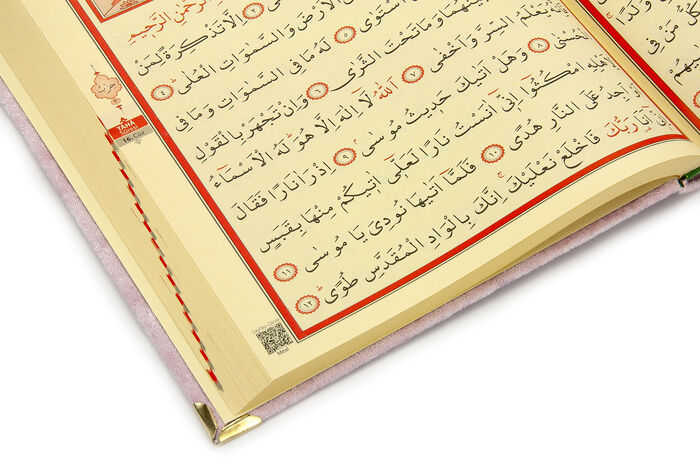 الرَّحْمٰنِ الرَّحِيمِ
اِلَّا تَذْكِرَةً لِمَنْ
الْاَرْضَ وَالسَّمٰوَاتِ الْعُلٰى ٤
اسْتَوٰى ٥ لَهُ مَا فِي السَّمٰوَاتِ وَمَا فِي
بَيْنَهُمَا وَمَا تَحْتَ الثَّرٰى ٦ وَاِنْ تَجْهَرْ بِالْقَوْلِ
يَعْلَمُ السِّرَّ وَاَخْفٰى ٧ اَللّٰهُ لَا اِلٰهَ اِلَّا هُوَ لَهُ الْاَسْمَاءُ
٨ وَهَلْ اَتٰيكَ حَدِيثُ مُوسٰى ٩ اِذْ رَاٰ نَارًا فَقَالَ
امْكُثُوا اِنِّي اٰنَسْتُ نَارًا لَعَلِّي اٰتِيكُمْ مِنْهَا بِقَبَسٍ
اَجِدُ عَلَى النَّارِ هُدًى ١٠ فَلَمَّا اَتٰيهَا نُودِيَ يَا مُوسٰى ١١
اَنَا رَبُّكَ فَاخْلَعْ نَعْلَيْكَ اِنَّكَ بِالْوَادِ الْمُقَدَّسِ طُوًى ١٢
TAHA
16. CÜZ
Meal